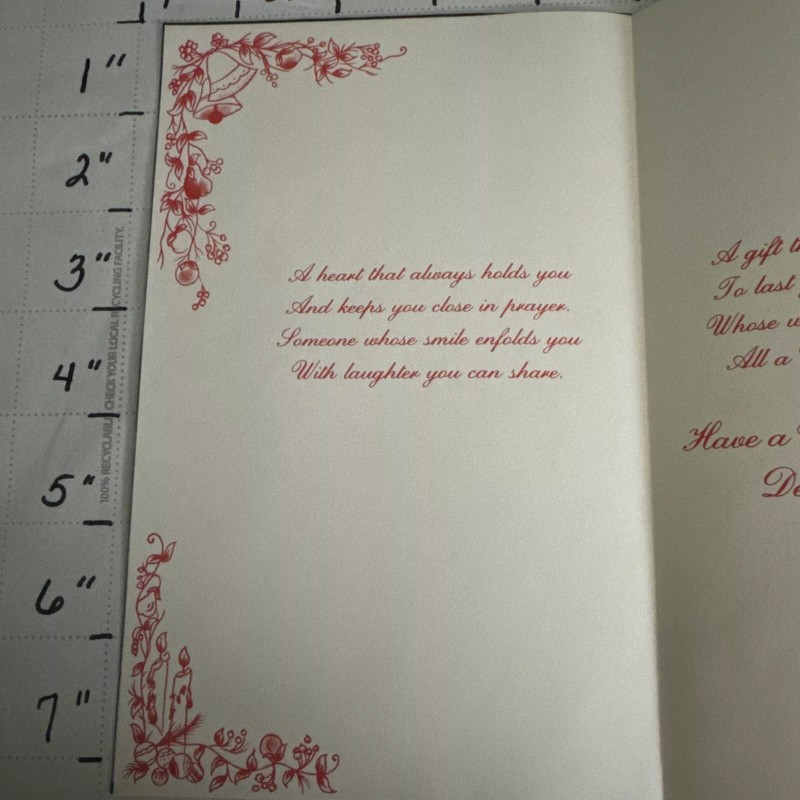 1"
2"
3"
4"
5"
6"
7"
100% RECYCLABLE CHECK YOUR LOCAL RECYCLING FACILITY.
A heart that always holds you
And keeps you close in prayer.
Someone whose smile enfolds you
With laughter you can share.
A gift
To last
Whose
All a
Have a